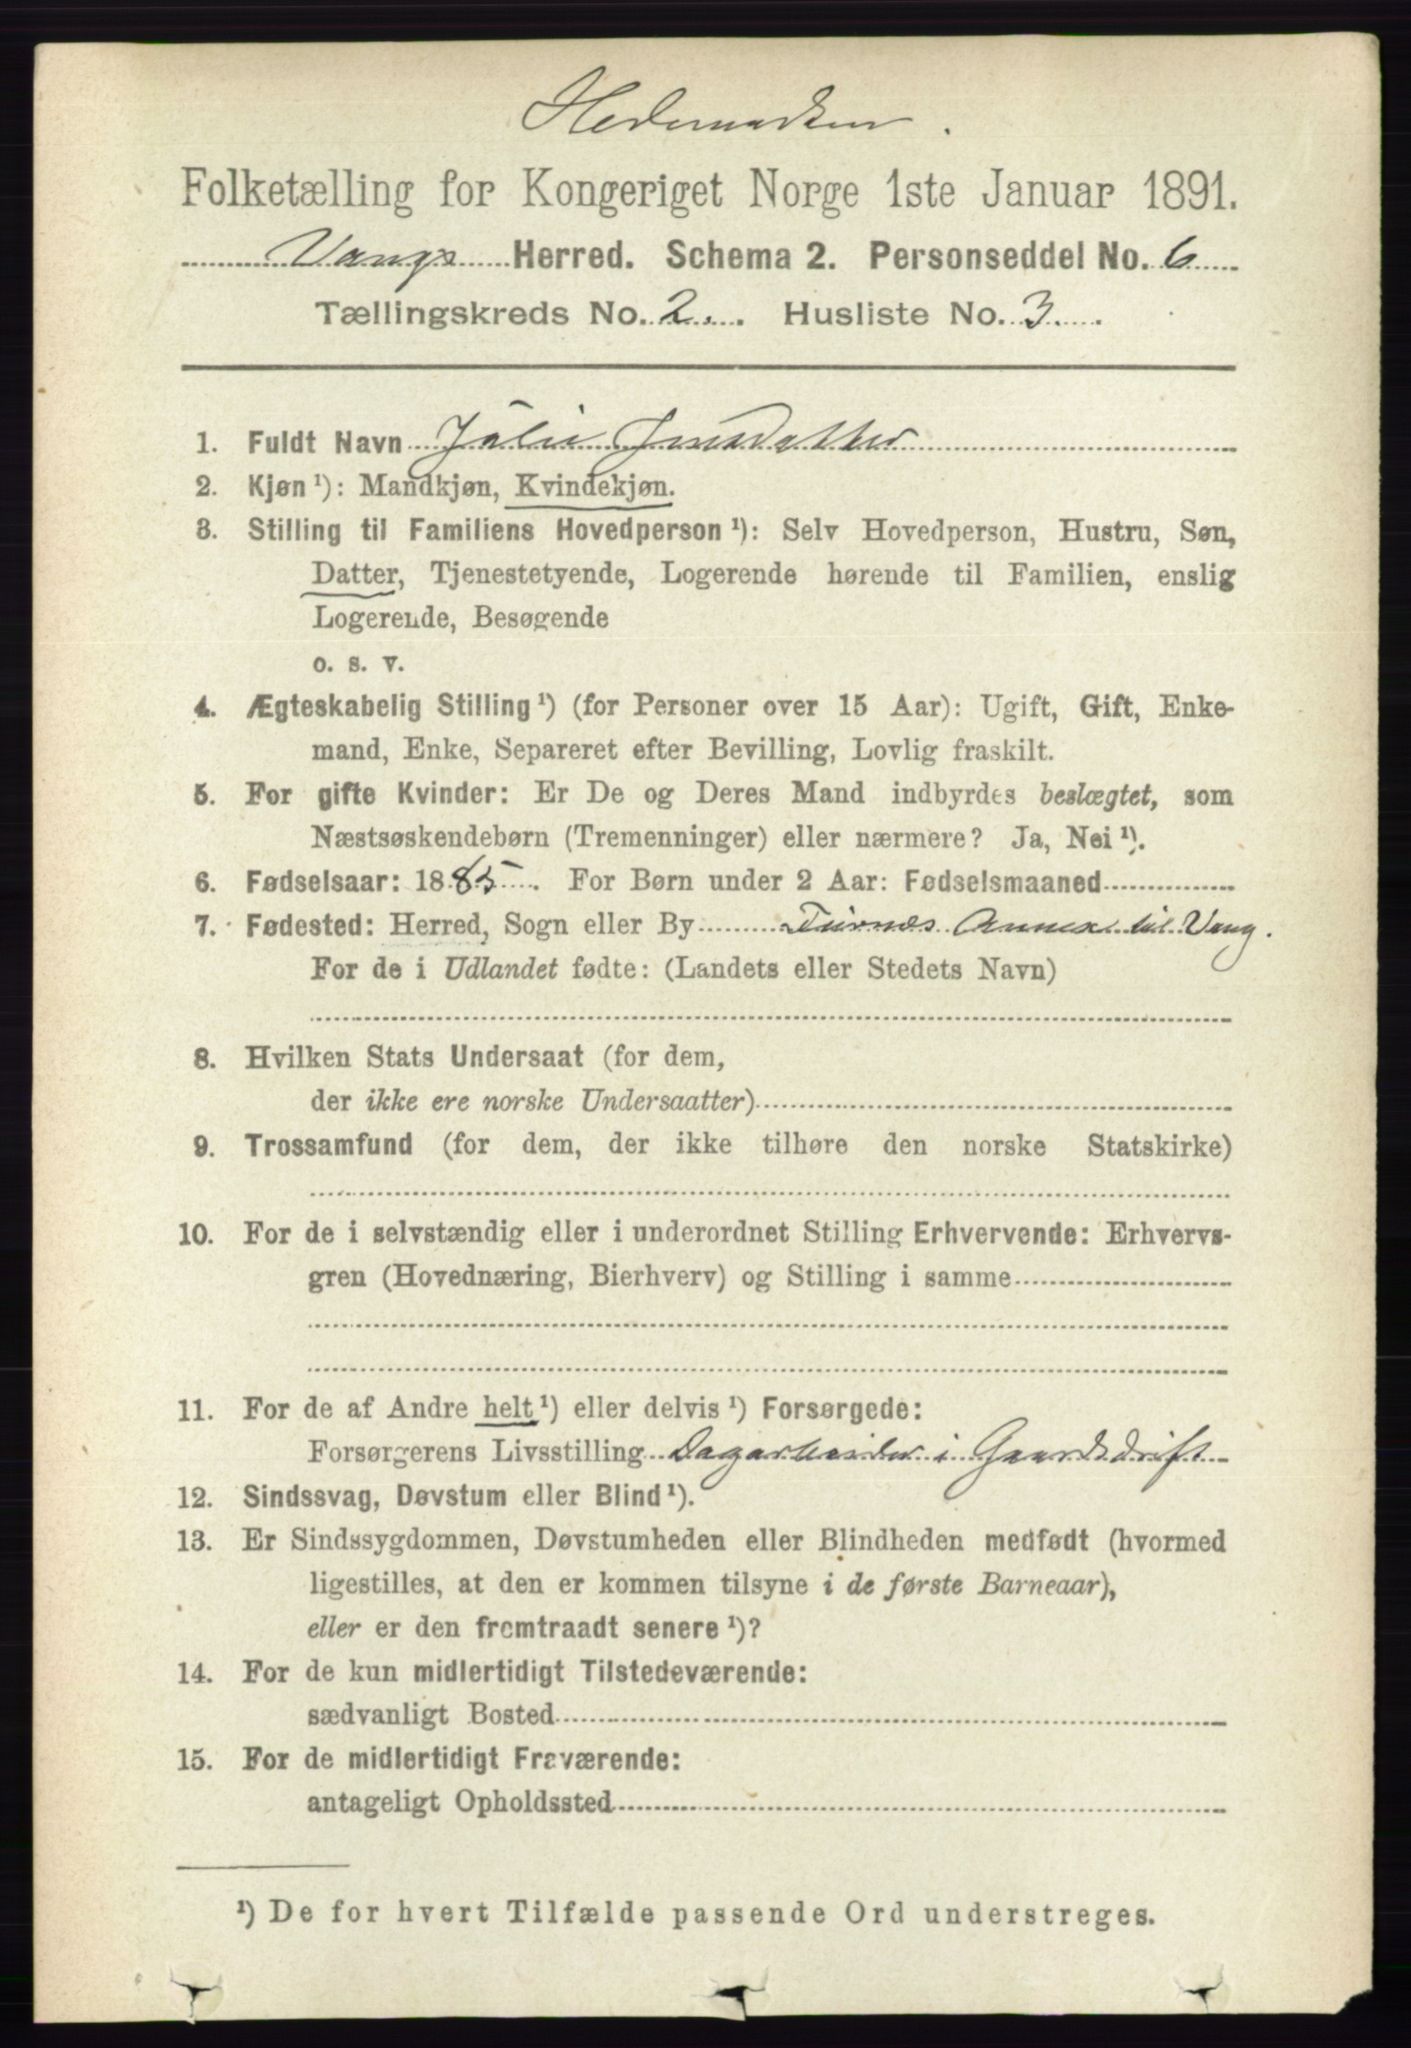 Hedemarken.
Folketælling for Kongeriget Norge 1ste Januar 1891.
Vangs Herred. Schema 2. Personseddel No. 6
Tællingskreds No. 2. Husliste No. 3.
1. Fuldt Navn Julie Jensdatter
2. Kjøn ¹): Mandkjøn, Kvindekjøn.
3. Stilling til Familiens Hovedperson ¹): Selv Hovedperson, Hustru, Søn,
Datter, Tjenestetyende, Logerende hørende til Familien, enslig
Logerende, Besøgende
o. s. v.
4. Ægteskabelig Stilling ¹) (for Personer over 15 Aar): Ugift, Gift, Enke-
mand, Enke, Separeret efter Bevilling, Lovlig fraskilt.
5. For gifte Kvinder: Er De og Deres Mand indbyrdes beslægtet, som
Næstsøskendebørn (Tremenninger) eller nærmere? Ja, Nei ¹).
6. Fødselsaar: 1885. For Børn under 2 Aar: Fødselsmaaned
7. Fødested: Herred, Sogn eller By Furnæs Annex til Vang.
For de i Udlandet fødte: (Landets eller Stedets Navn)
8. Hvilken Stats Undersaat (for dem,
der ikke ere norske Undersaatter)
9. Trossamfund (for dem, der ikke tilhøre den norske Statskirke)
10. For de i selvstændig eller i underordnet Stilling Erhvervende: Erhvervs-
gren (Hovednæring, Bierhverv) og Stilling i samme
11. For de af Andre helt ¹) eller delvis ¹) Forsørgede:
Forsørgerens Livsstilling Dagarbeider i Gaardsdrift
12. Sindssvag, Døvstum eller Blind ¹).
13. Er Sindssygdommen, Døvstumheden eller Blindheden medfødt (hvormed
ligestilles, at den er kommen tilsyne i de første Barneaar),
eller er den fremtraadt senere ¹)?
14. For de kun midlertidigt Tilstedeværende:
sædvanligt Bosted
15. For de midlertidigt Fraværende:
antageligt Opholdssted
¹) De for hvert Tilfælde passende Ord understreges.